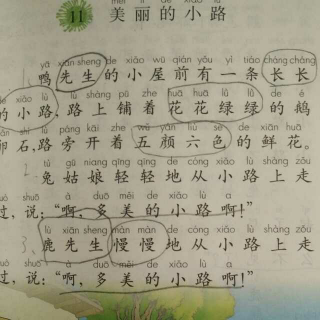 měi lì de xiǎo lù
11 美丽的小路
yā xiān sheng de xiǎo wū qián yǒu yì tiáo cháng cháng
1. 鸭先生的小屋前有一条长长
de xiǎo lù lù shàng pū zhe huā huā lǜ lǜ de é
的小路,路上铺着花花绿绿的鹅
luǎn shí lù páng kāi zhe wǔ yán liù sè de xiān huā
卵石,路旁开着五颜六色的鲜花。
tù gū niang qīng qīng de cóng xiǎo lù shàng zǒu
2. 兔姑娘轻轻地从小路上走
guò shuō ā duō měi de xiǎo lù a
过,说:“啊,多美的小路啊!”
lù xiān sheng màn màn de cóng xiǎo lù shàng zǒu
3. 鹿先生慢慢地从小路上走
guò shuō ā duō měi de xiǎo lù a
过,说:“啊,多美的小路啊!”